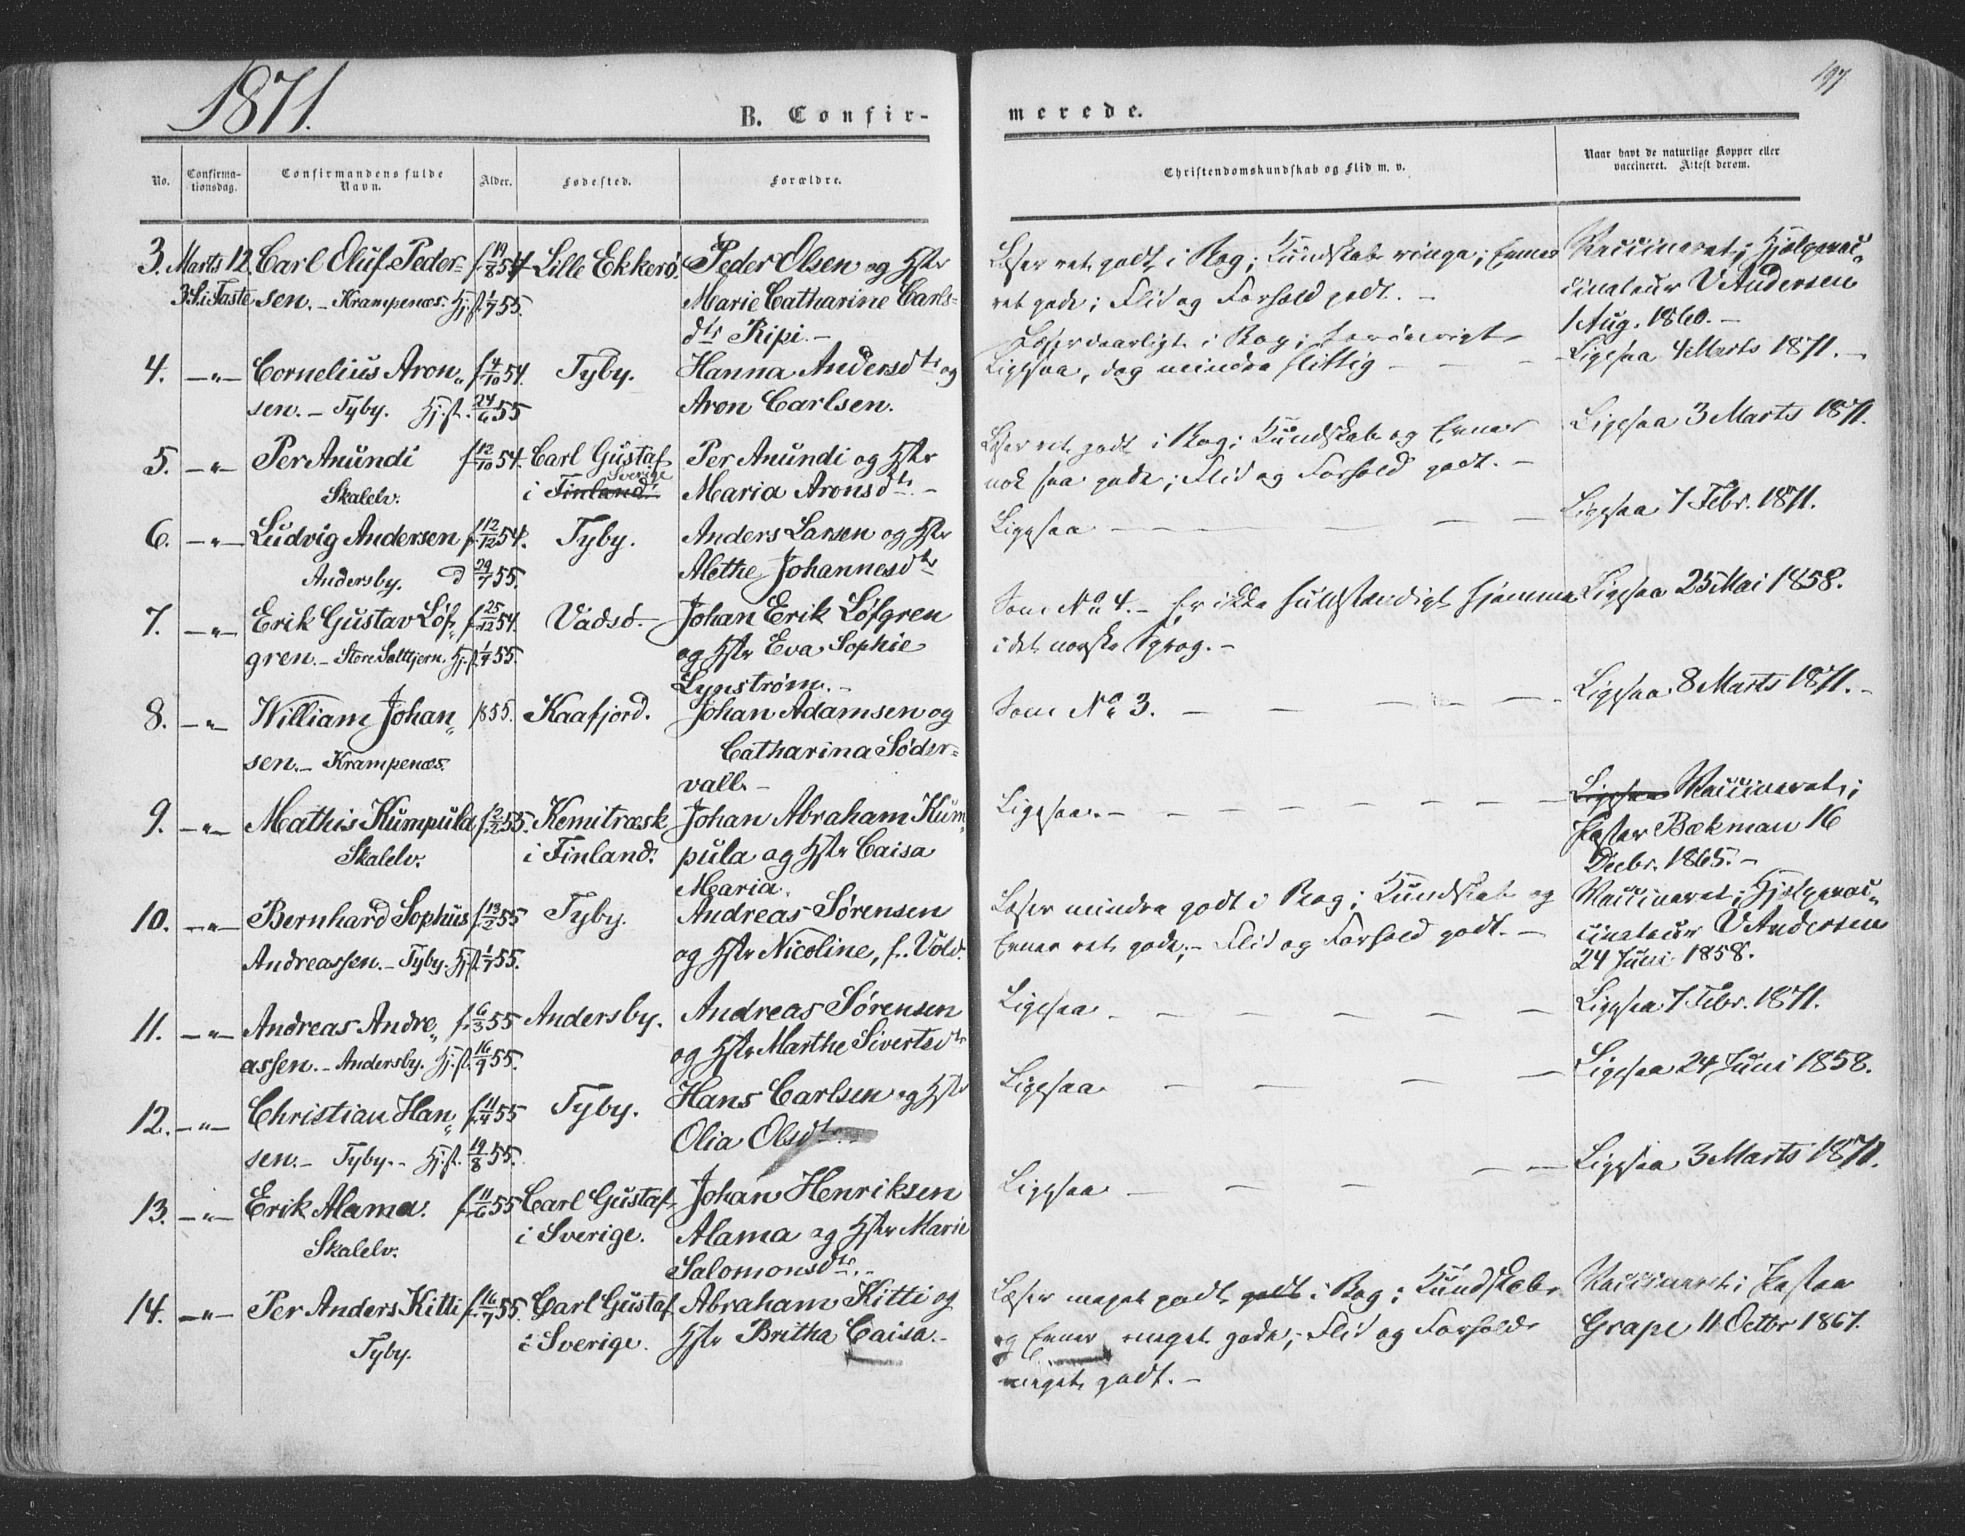 1871.
197
B. Confir-
merede.
No.
Confirma-
tionsdag.
Confirmandens fulde
Navn.
Alder.
Fødested.
Forældre.
Christendomskundskab og Flid m. v.
Naar havt de naturlige Kopper eller
vaccineret. Attest derom.
3. Marts 12. Carl Oluf Peder= f. 19/8 54 Lille Ekkerø. Peder Olsen og Hstr
3 S. i Faste sen. - Krampenæs. Hj.f. 1/7 55. Marie Catharine Carls=
dtr Ripi. -
Læser ret godt i Bog; Kundskab ringe; Evner
ret gode; Flid og Forhold godt. -
Vaccineret; Hjelpevac=
cinateur V Andersen
1 Aug. 1860. -
4. -„- Cornelius Aron„ f. 4/10 54. Tyby. Hanna Andersdtr og
sen. - Tyby. Hj.f. 24/6 55 Aron Carlsen.
Læser daarligt i Bog; forøvrigt
Ligesaa, dog mindre flittig - - -
Ligesaa 4 Marts 1871. -
5. -„- Per Anundi f. 12/10 54. Carl Gustaf Per Anundi og Hstr
Sverige
Skalelv. i Finland. Maria Aronsdtr. -
Læser ret godt i Bog; Kundskab og Evner
nok saa gode; Flid og Forhold godt. -
Ligesaa 3 Marts 1871.
6. -„- Ludvig Andersen f. 12/12 54. Tyby. Anders Larsen og Hstr
Andersby. d 29/7 55. Alethe Johannesdtr
Ligesaa - - - - -
Ligesaa 7 Febr. 1871.
7. -„- Erik Gustav Løf„ f. 25/12 54. Vadsø. - Johan Erik Løfgren
gren. - Store Saltjern. Hj.f. 1/4 55. og Hstr Eva Sophie
Lynstrøm. -
Som No 4. - Er ikke fuldstændigt hjemme
i det norske Sprog. -
Ligesaa 25 Mai 1858.
8. -„- William Johan„ 1855. Kaafjord. Johan Adamsen og
sen. - Krampenæs. Catharina Søder=
vall. -
Som No 3. - - - - -
Ligesaa 8 Marts 1871. -
9. -„- Mathis Kumpula f. 2/2 55. Kemitræsk Johan Abraham Kum=
Skalelv. i Finland. pula og Hstr Caisa
Maria.
Ligesaa. - - - - -
Ligesaa Vaccineret;
Pastor Bækman 16
Decbr. 1865. -
10. -„- Bernhard Sophus f. 13/2 55 Tyby. Andreas Sørensen
Andreassen. - Tyby. Hj.f. 1/7 55. og Hstr Nicoline, f. Vold.
Læser mindre godt i Bog; Kundskab og
Evner ret gode; - Flid og Forhold godt. -
Vaccineret; Hjelpevac=
cinateur V Andersen
24 Juni 1858.
11. -„- Andreas Andre„ f. 6/3 55 Andersby. Andreas Sørensen
assen. - Andersby. Hj.f. 16/9 55. og Hstr Marthe Sivertsdtr
Ligesaa - - - - -
Ligesaa 7 Febr. 1871.
12. -„- Christian Han„ f. 11/4 55 Tyby. Hans Carlsen og Hstr
sen. - Tyby. - Hj.f. 19/8 55. Olia Olsdtr. -
Ligesaa - - - -
Ligesaa 24 Juni 1858.
13. -„- Erik Alama. f. 11/6 55 Carl Gustaf Johan Henriksen
Skalelv. i Sverige. Alama og Hstr Marie
Salomonsdtr. -
Ligesaa - - - - -
Ligesaa 3 Marts 1871.
14. -„- Per Anders Kitti f. 16/7 55. Carl Gustaf Abraham Kitti og
Tyby. i Sverige. Hstr Britha Caisa. -
Læser meget godt godt i Bog; Kundskab
og Evner meget gode; Flid og Forhold
meget godt. -
Vaccineret; Pastor
Grape 11 Octbr 1867.